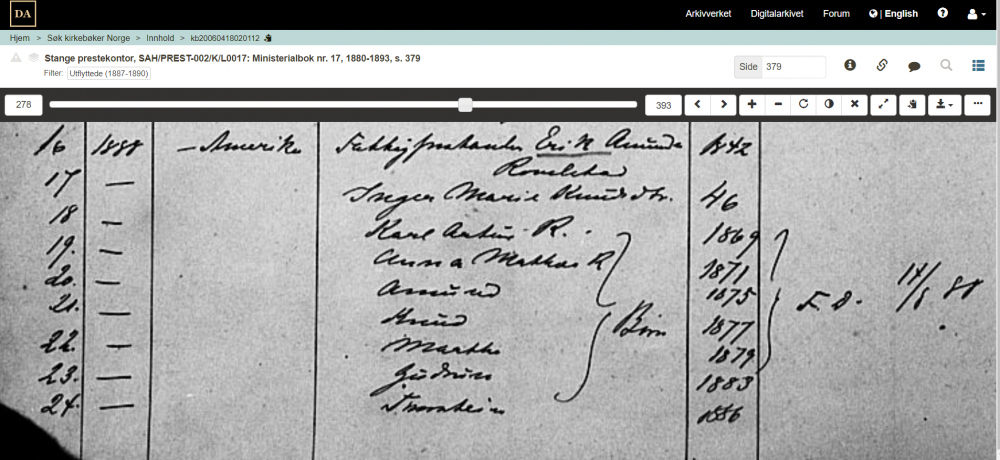 DA
Arkivverket Digitalarkivet Forum | English
Hjem > Søk kirkebøker Norge > Innhold > kb20060418020112
Stange prestekontor, SAH/PREST-002/K/L0017: Ministerialbok nr. 17, 1880-1893, s. 379
Filter: Utflyttede (1887-1890)
Side 379
278 393
16 1888 — Amerika Erik Amunds 1842
17 —
Inger Marie Knudsdtr. 46
18 — Karl Artur R. 1869
19. — Anna Mathea R 1871
20. — Amund 1875 F. D. 14/6 88
21. — Knud Børn 1877
22. — Marthe 1879
23. — Gudrun 1883
24. — Thorstein 1886